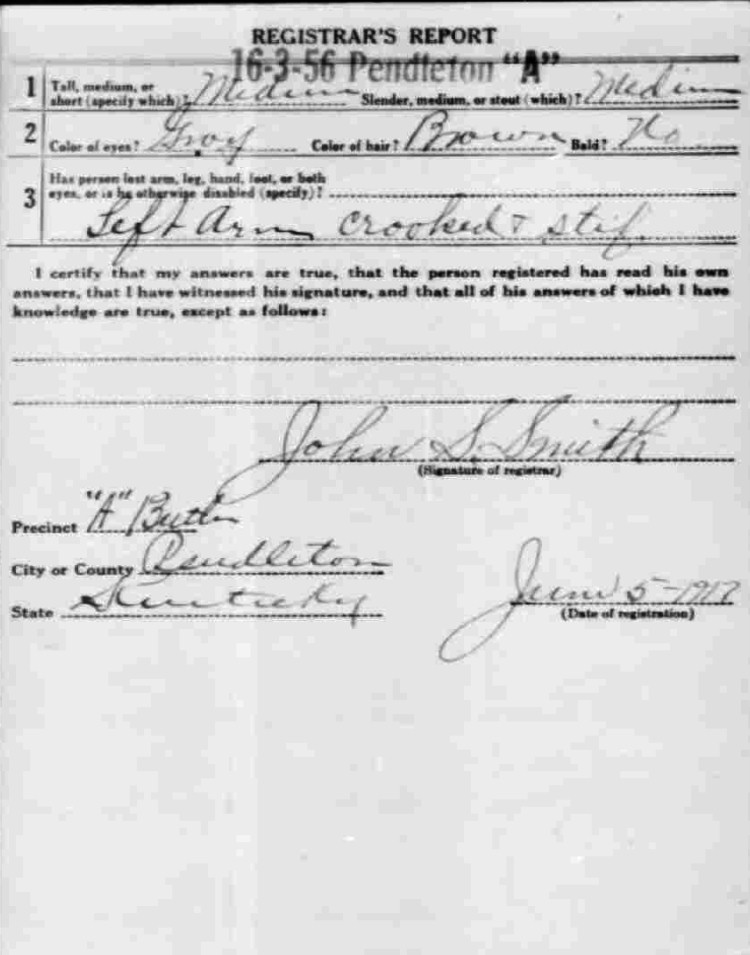 REGISTRAR'S REPORT
16-3-56 Pendleton "A"
1 Tall, medium, or short (specify which)? Medium Slender, medium, or stout (which)? Medium
2 Color of eyes? Gray Color of hair? Brown Bald? No
3 Has person lost arm, leg, hand, foot, or both
eyes, or is he otherwise disabled (specify)?
Left Arm crooked & stif
I certify that my answers are true, that the person registered has read his own
answers, that I have witnessed his signature, and that all of his answers of which I have
knowledge are true, except as follows:
John S. Smith
(Signature of registrar)
Precinct "A" Butler
City or County Pendleton
State Kentucky
June 5-1917
(Date of registration)